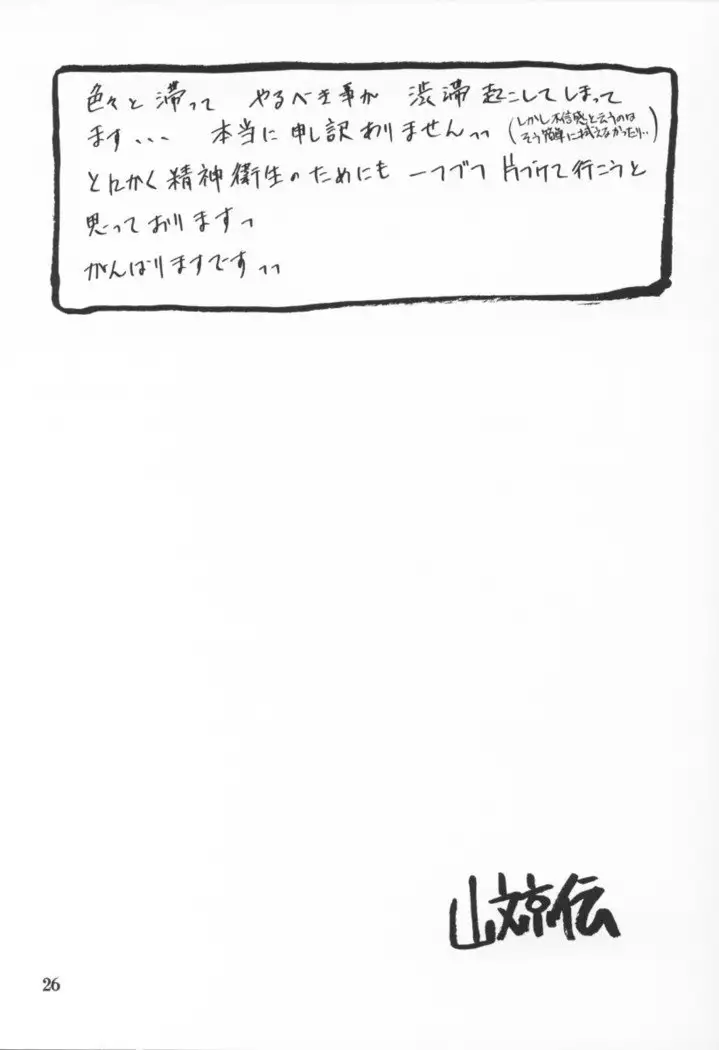 色々と滞って やるべき事が 渋滞起こしてしまって
ます... 本当に申し訳ありませんっっ(しかし不信感と云うのは
そう簡単に拭えなかったり...)
とにかく精神衛生のためにも 一つづつ 片づけて行こうと
思っておりますっ
がんばりますですっっ
山文京伝
26